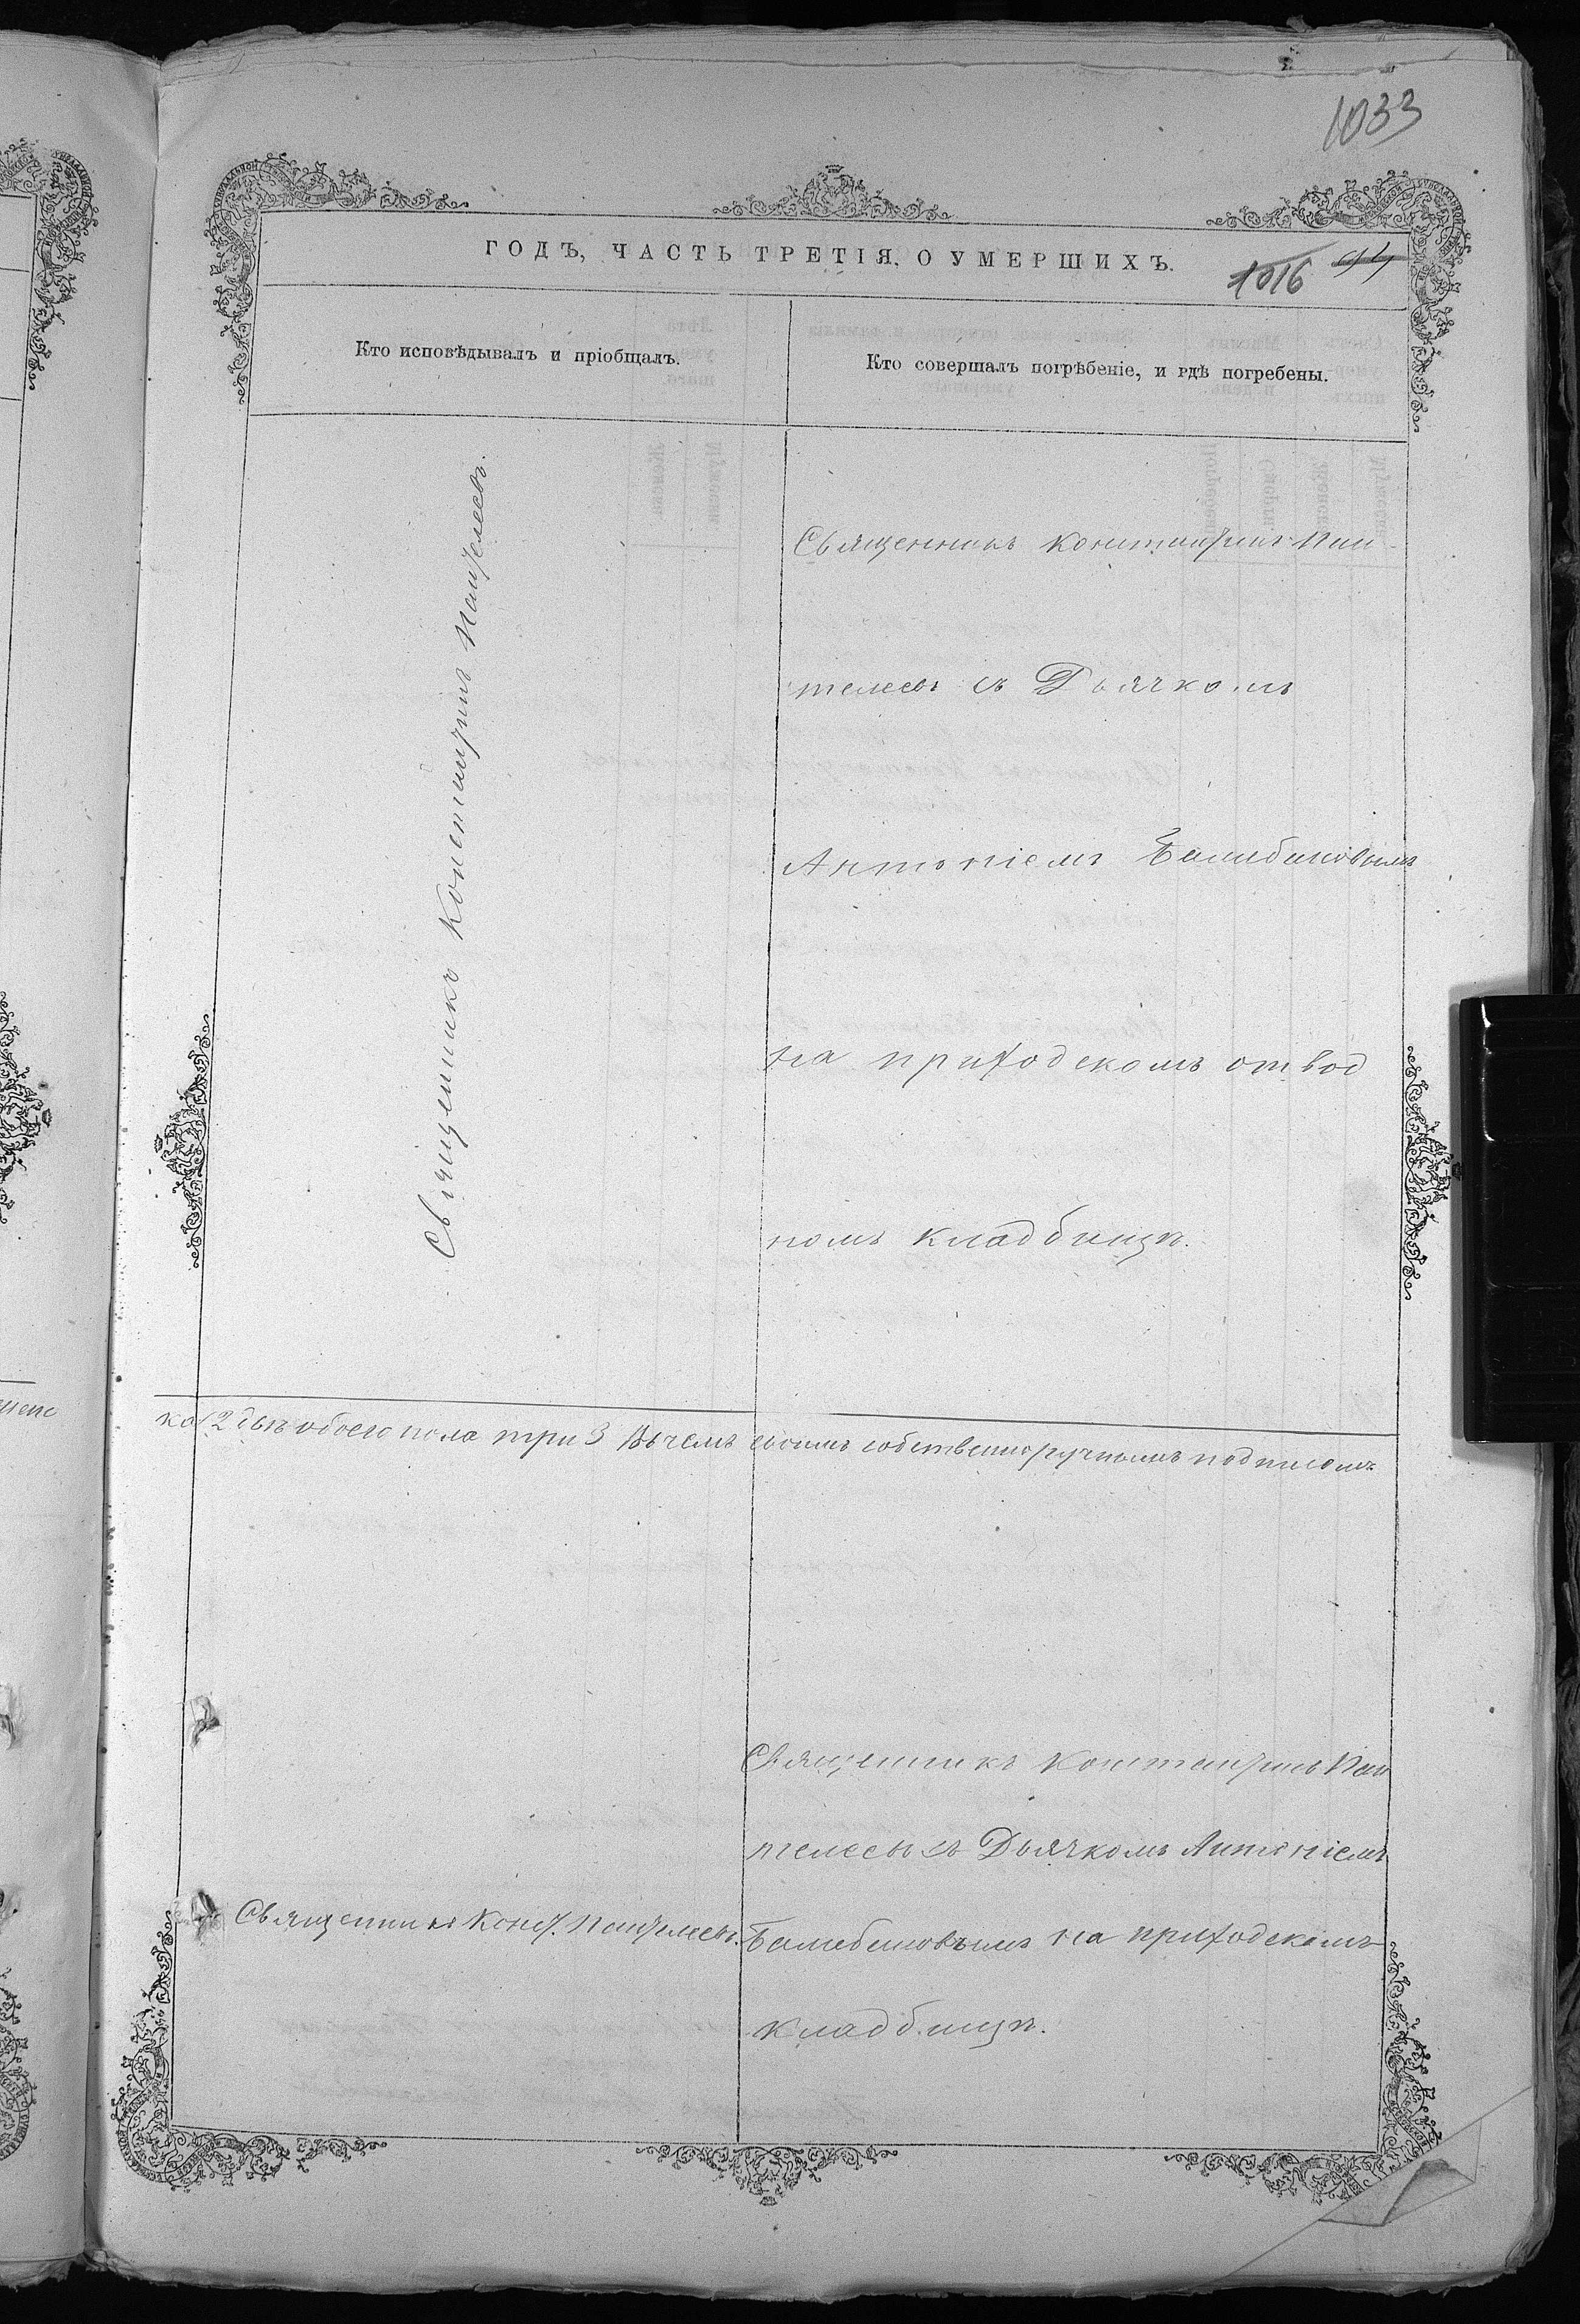 1033
ГОДЪ, ЧАСТЬ ТРЕТІЯ, О УМЕРШИХЪ.
1016
Кто исповѣдывалъ и пріобщалъ.
Кто совершалъ погрѣбеніе, и гдѣ погребены.
Священникъ Константинъ Пантелеевъ.
Священникъ Константинъ Пан
телеевъ съ Дьячкомъ
Антоніемъ
на приходскомъ отвод
номъ кладбищѣ.
ка 2 двѣ обоего пола три 3 Въ чемъ своимъ собственноручнымъ подписомъ
Священникъ Конст. Пантелеевъ.
Священникъ Константинъ Пан
телеевъ съ Дьячкомъ Антоніемъ
на приходскомъ
кладбищѣ.